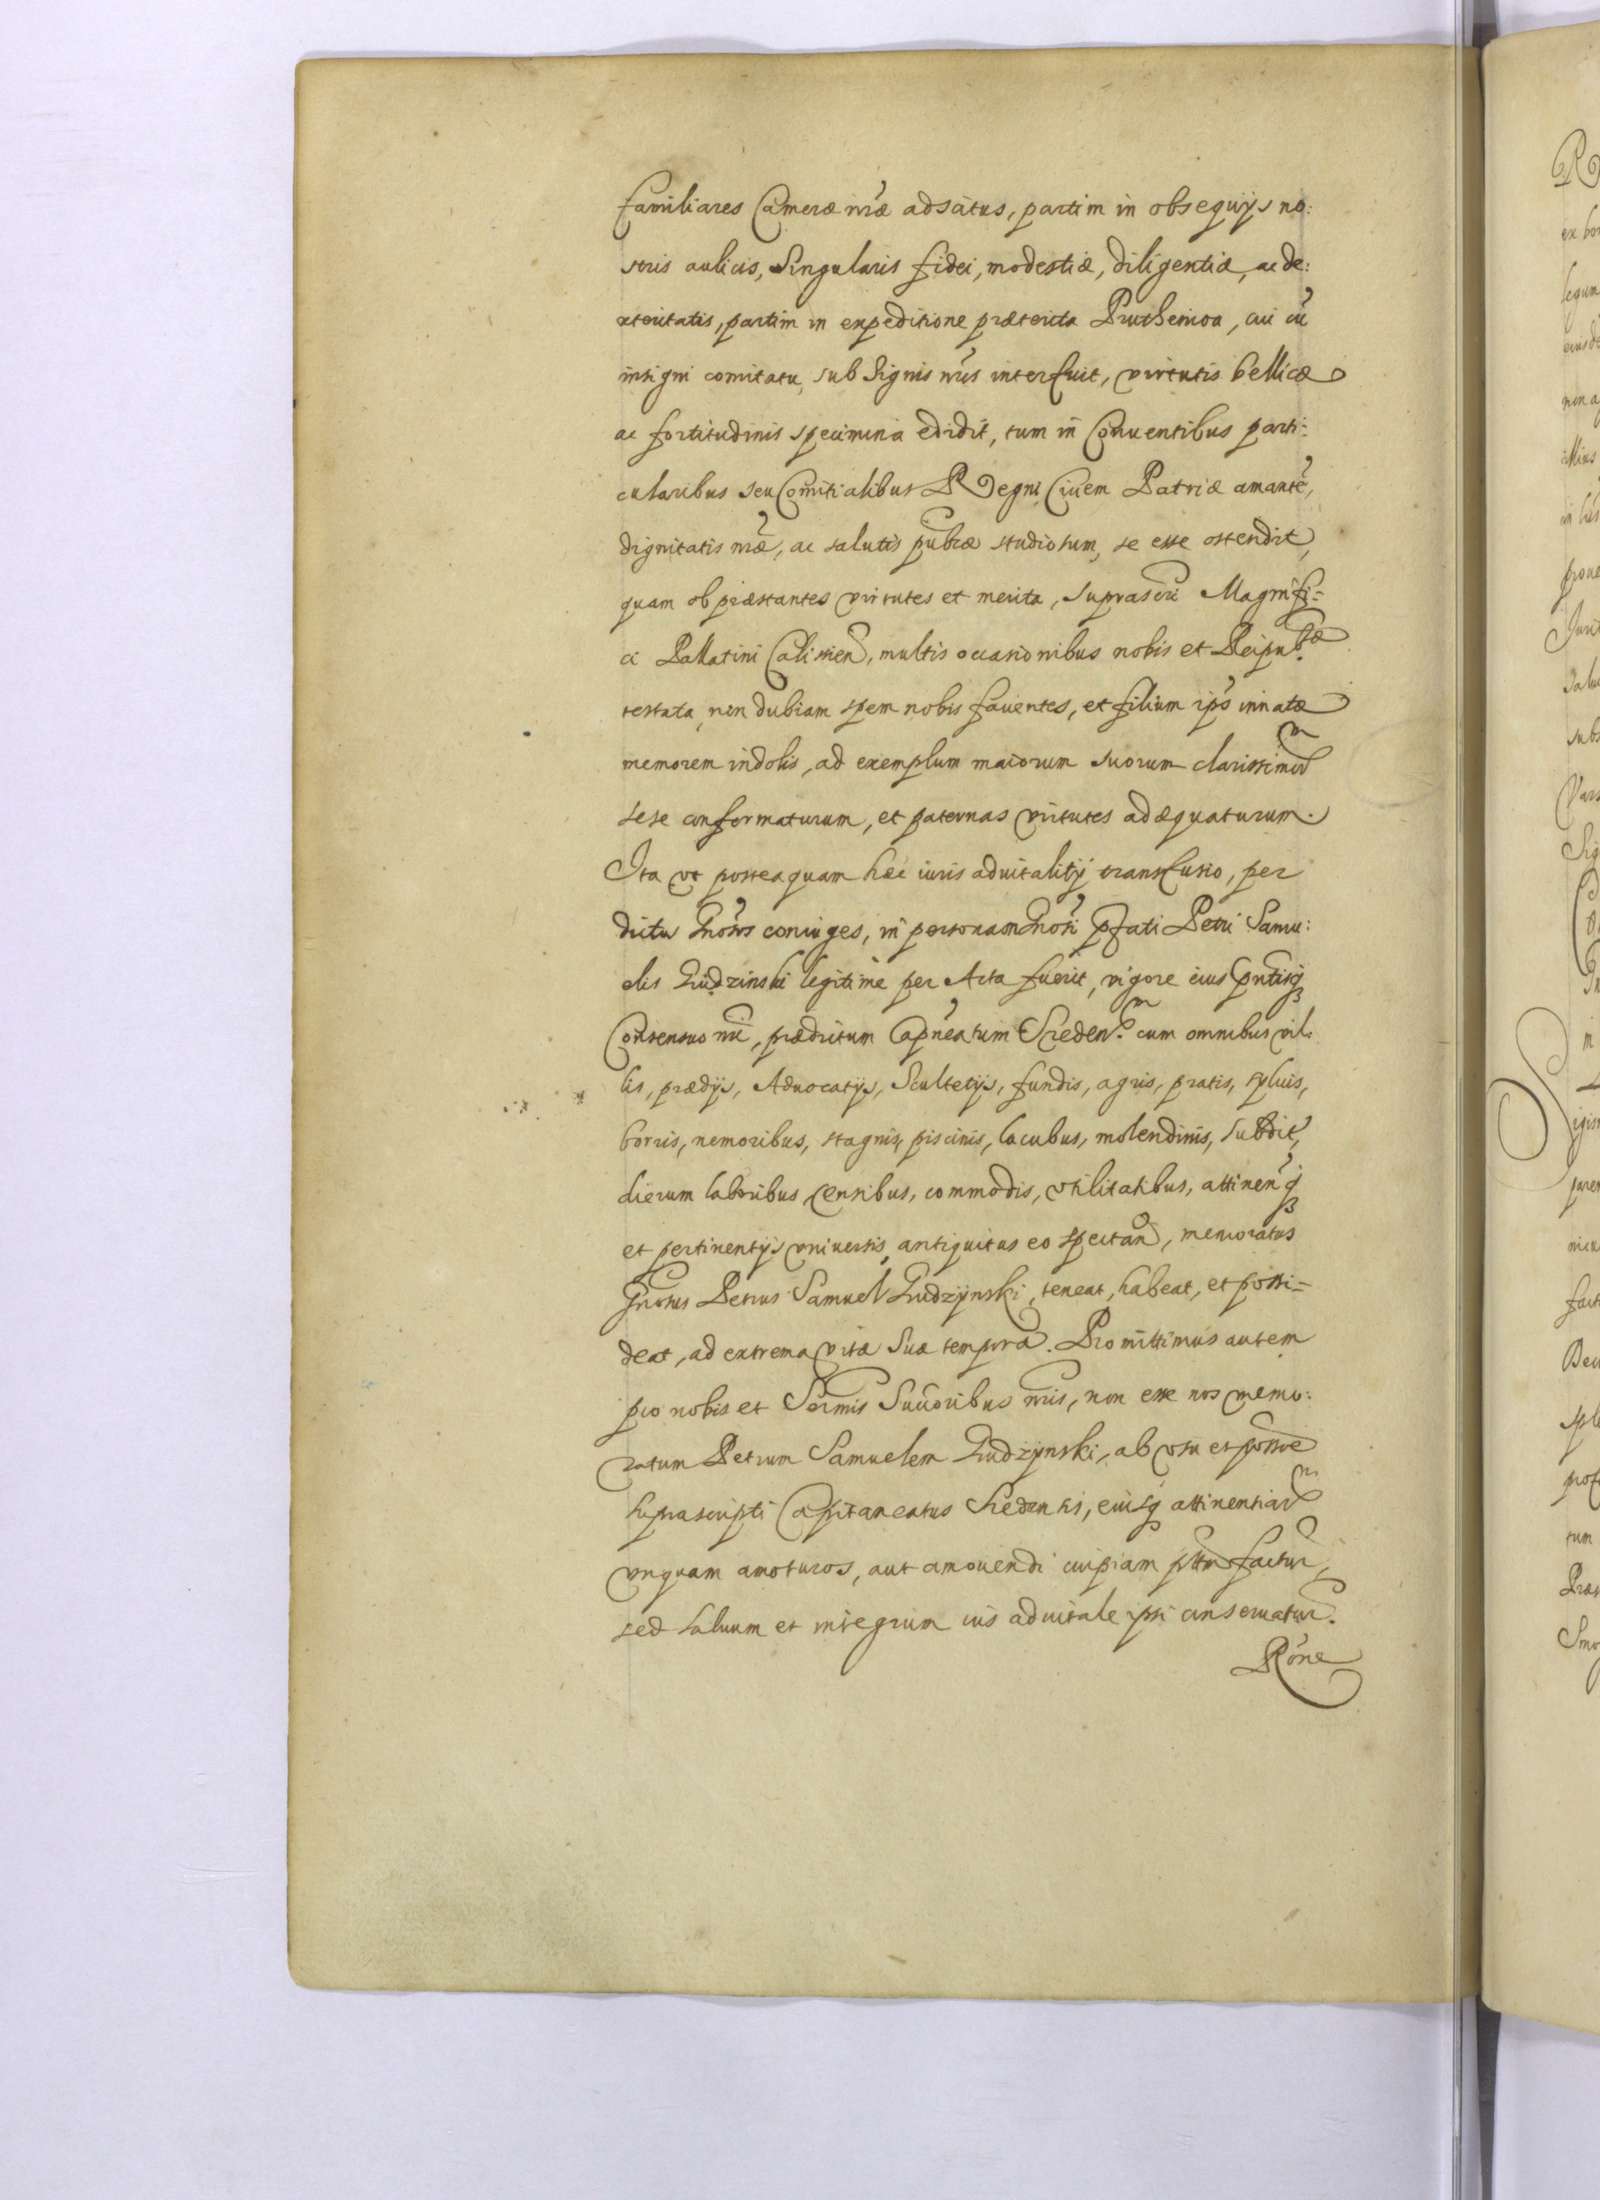 familiares Cameræ nræ adscitus, partim in obsequijs no:
stris aulicis, Singularis fidei, modestiæ, diligentiæ, ac de:
xteritatis, partim in expeditione præterita Pruthenica, cui cũ
insigni comitatu, sub Signis nris interfuit, virtutis bellicæ
ac fortitudinis specimina edidit, tum in Conuentibus parti:
cularibus seu Comitialibus Regni Ciuem Patriæ amantẽ,
dignitatis nræ, ac salutis pubcæ studiosum, se esse ostendit,
quam ob præstantes virtutes et merita, suprascri Magnifi=
ci Pallatini Calissien, multis occasionibus nobis et Reipubcæ
testata, non dubiam spem nobis fauentes, et filium ips innatæ
memorem indolis, ad exemplum maiorum suorum clarissimor
sese conformaturum, et paternas virtutes adæquaturum.
Ita vt posteaquam hæc iuris aduitalitij transfusio, per
dictos Gnosos coniuges, in personam Gnosi pfati Petri Samu:
elis Grudzinski legitime per Acta fuerit, vigore eius pntisq
Consensus nri, prædictum Capneatum Sreden. cum omnibus vil:
lis, prædijs, Aduocatijs, Scultetijs, fundis, agris, pratis, syluis,
borris, nemoribus, stagnis, piscinis, lacubus, molendinis, subdit,
dierum laboribus, censibus, commodis, vtilitatibus, attinen q
et pertinentijs vniuersis, antiquitus eo spectan, memoratus
Gnosus Petrus Samuel Grudzynski, teneat, habeat, et possi=
deat, ad extrema vitæ suæ tempora. Promittimus autem
pro nobis et Sermis Succoribus nris, non esse nos memo:
ratum Petrum Samuelem Grudzynski, ab vsu et possne
suprascripti Capitaneatus Sredensis, eiusq attinentiar
vnquam amoturos, aut amouendi cuipiam pttm factur,
sed saluum et integrum ius aduitale ipsi conseruatur.
Rone